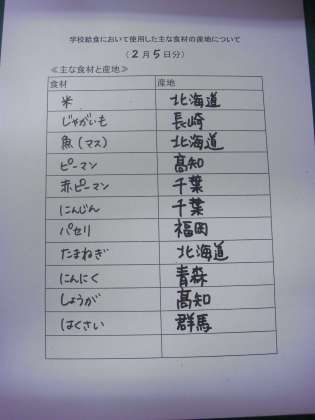 学校給食において使用した主な食材の産地について
(2月5日分)
≪主な食材と産地≫
食材 産地
米 北海道
じゃがいも 長崎
魚(マス) 北海道
ピーマン 高知
赤ピーマン 千葉
にんじん 千葉
パセリ 福岡
たまねぎ 北海道
にんにく 青森
しょうが 高知
はくさい 群馬